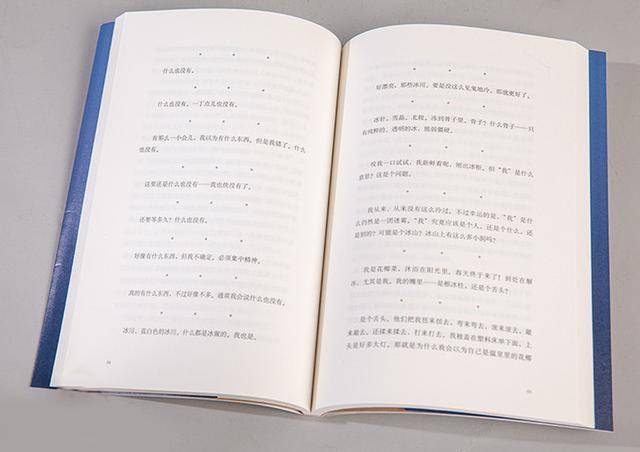 * * *
什么也没有。
* * *
什么也没有。一丁点儿也没有。
* * *
有那么一小会儿，我以为有什么东西，但是我错了。什么
也没有。
* * *
这里还是什么也没有——我也快没有了。
* * *
还要等多久？什么也没有。
* * *
好像有什么东西，但我不确定。必须集中精神。
* * *
真的有什么东西，不过好像不多。通常我会说什么也没有。
* * *
冰川。蓝白色的冰川。什么都是冰做的。我也是。
* * *
好漂亮，那些冰川。要是没这么见鬼地冷，那就更好了。
* * *
冰针，雪晶，北极。冻到骨子里。骨子？什么骨子——只
有纯粹的、透明的冰，脆弱僵硬。
* * *
咬我一口试试，我新鲜着呢，刚出冰柜。但“我”是什么
意思？这是个问题。
* * *
我从来、从来没有这么冷过。不过幸运的是，“我”是什
么仍然是一团迷雾。“我”究竟应该是个人，还是个什么，还
是别的？可能是个冰山？冰山上有这么多小洞吗？
* * *
我是花椰菜，沐浴在阳光里。春天终于来了！到处在解
冻，尤其是我。我的嘴里——是根冰柱，还是个舌头？
* * *
是个舌头。他们把我搭来搭去，弯来弯去，滚来滚去，敲
来敲去，还揉来揉去，打来打去。我被盖在塑料床单下面，上
头是好多大灯。那就是为什么我会以为自己是温室里的花椰